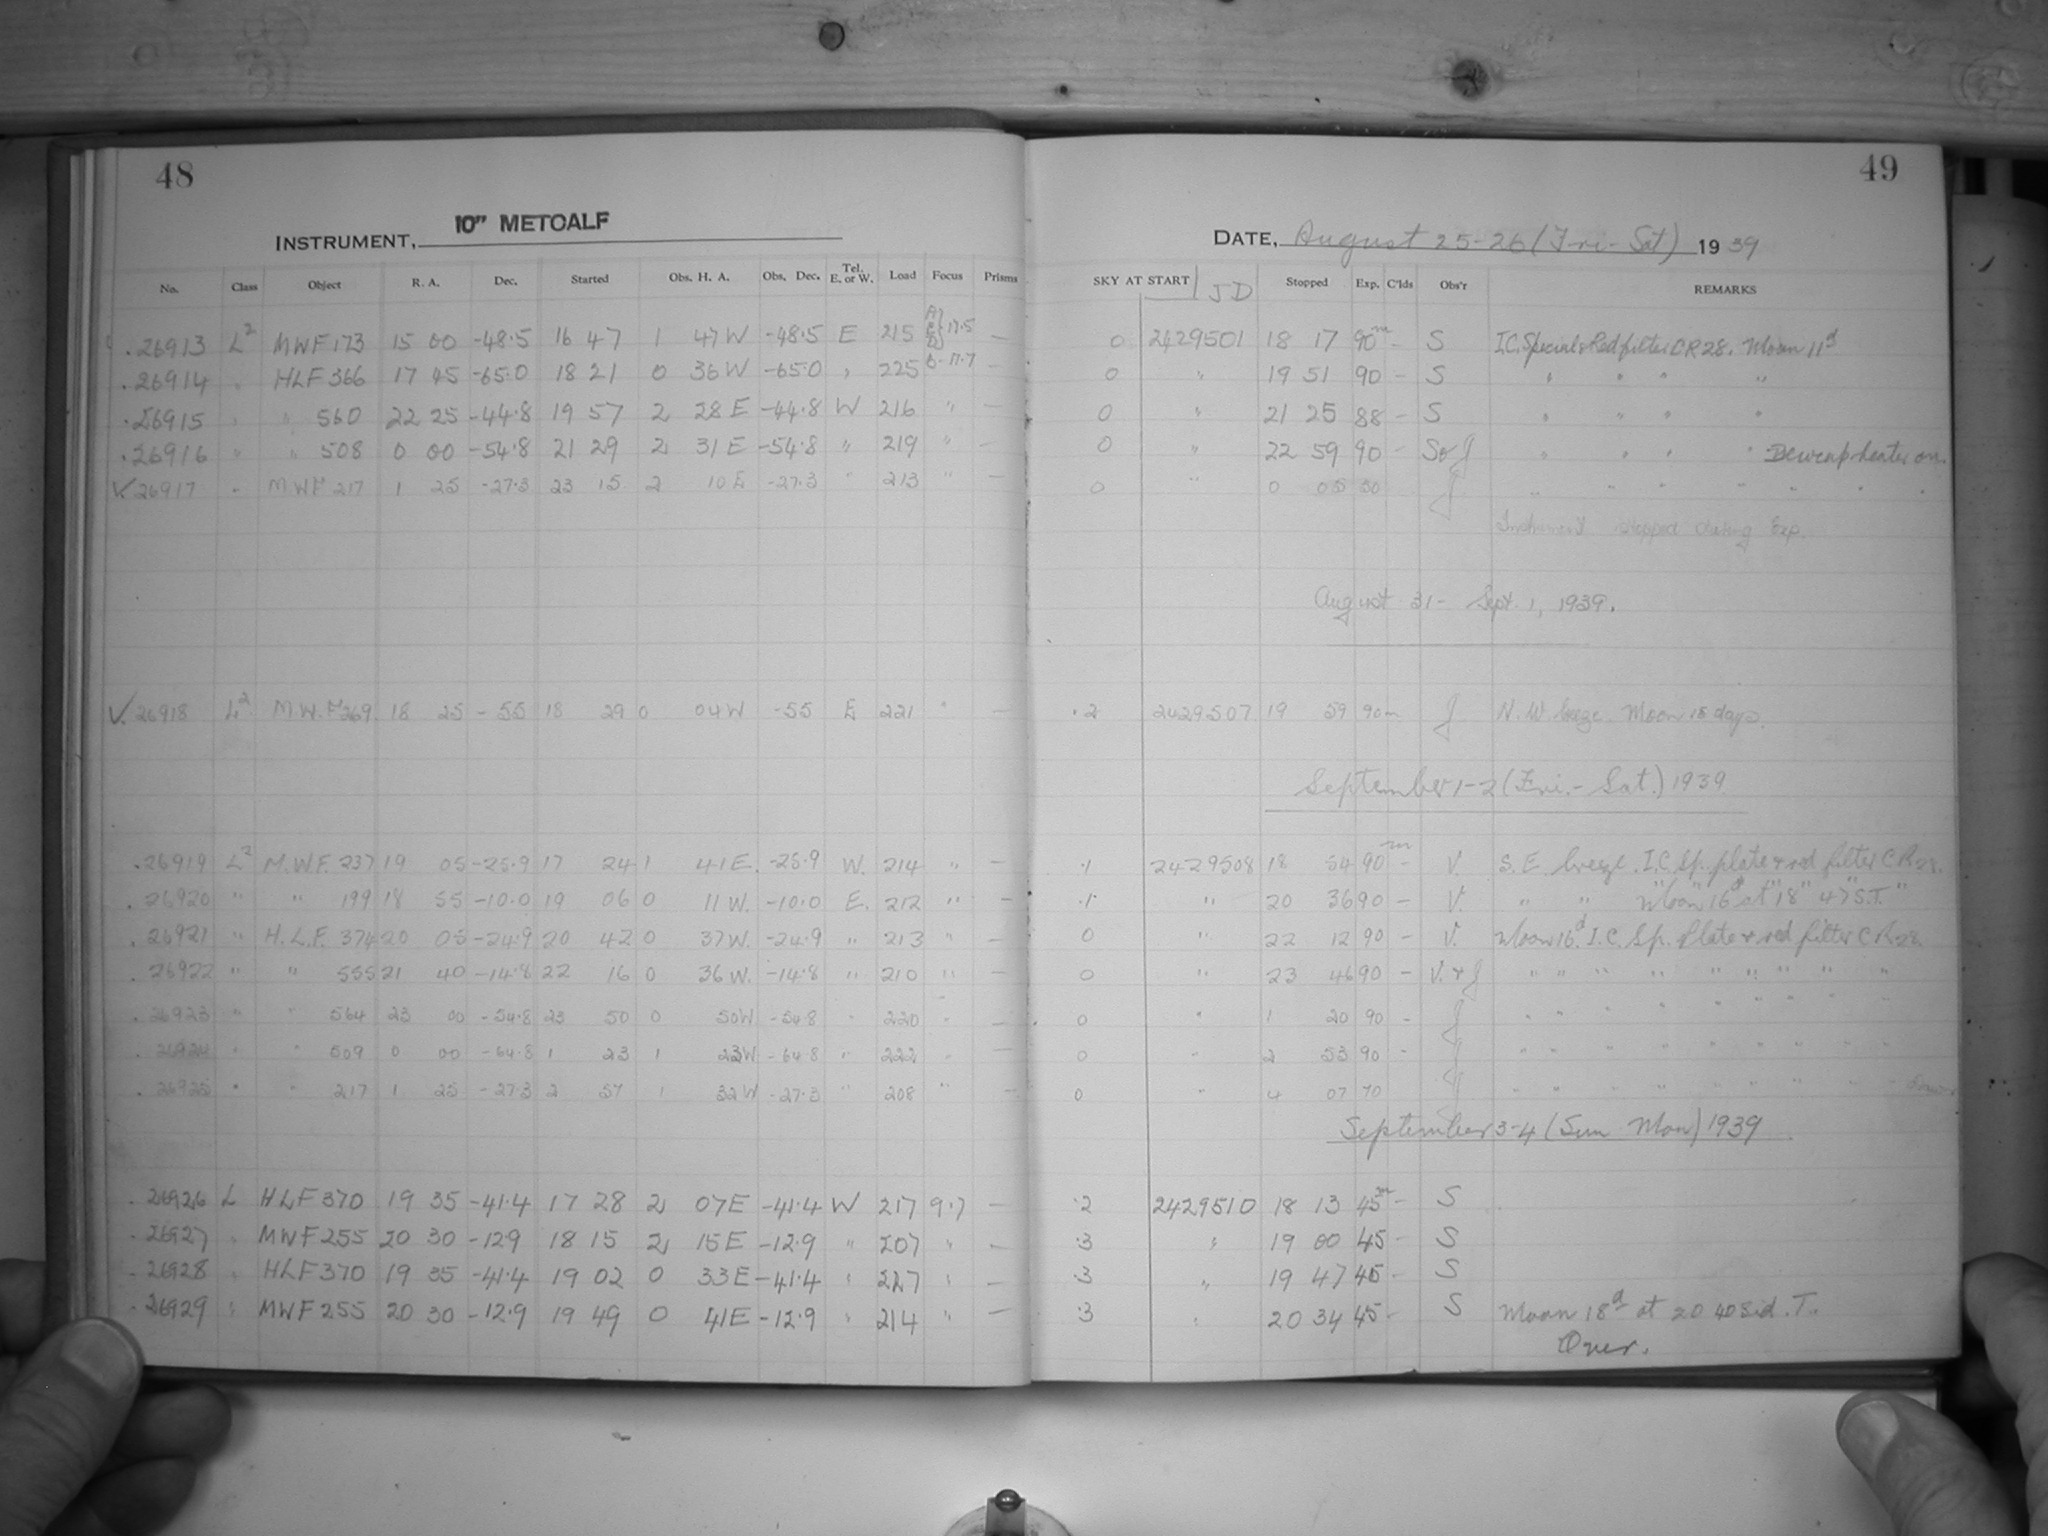 48
INSTRUMENT, 10" METCALF
No. Class Object R. A. Dec. Started Obs. H. A. Obs. Dec. Tel. E. or W. Load Focus Prisms
.26913 L2 MWF 173 15 00 -48.5 16 47 1 47 W -48.5 E 215 17.5 —
.26914 " HLF 366 17 45 -65.0 18 21 0 36 W -65.0 " 225 B-17.7 —
.26915 " " 560 22 25 -44.8 19 57 2 28 E -44.8 W 216 " —
.26916 " " 508 0 00 -54.8 21 29 2 31 E -54.8 " 219 " —
✓.26917 " MWF 217 1 25 -27.3 23 15 2 10 E -27.3 " 213 " —
✓.26918 L2 M.W.F 269 18 25 -55 18 29 0 04 W -55 E 221 "
.26919 L2 M.W.F. 237 19 05 -25.9 17 24 1 41 E. -25.9 W. 214 " —
.26920 " " 199 18 55 -10.0 19 06 0 11 W. -10.0 E. 212 " —
.26921 " H.L.F. 374 20 05 -24.9 20 42 0 37 W. -24.9 " 213 " —
.26922 " " 555 21 40 -14.8 22 16 0 36 W. -14.8 " 210 " —
.26923 " " 564 23 00 -54.8 23 50 0 50 W -54.8 " 220 " —
.26924 " " 509 0 00 -64.8 1 23 1 23 W -64.8 " 222 " —
.26925 " " 217 1 25 -27.3 2 57 1 32 W -27.3 " 208 " —
.26926 L HLF 370 19 35 -41.4 17 28 2 07 E -41.4 W 217 9.7 —
.26927 " MWF 255 20 30 -12.9 18 15 2 15 E -12.9 " 207 " —
.26928 " HLF 370 19 35 -41.4 19 02 0 33 E -41.4 " 227 " —
.26929 " MWF 255 20 30 -12.9 19 49 0 41 E -12.9 " 214 " —
49
DATE, August 25-26 (Fri-Sat) 1939
SKY AT START JD Stopped Exp. C'lds Obs'r REMARKS
0 2429501 18 17 90m - S I.C. Special & Red filter CR28. Moon 11d
0 " 19 51 90 - S " " " "
0 " 21 25 88 - S " " " "
0 " 22 59 90 - S & J " " " " Dewcap heater on.
0 " 0 05 50 J " " " " " " "
Instrument stopped during Exp.
August 31 - Sept. 1, 1939.
.2 2429507 19 59 90m J N.W breeze. Moon 15 days.
September 1-2 (Fri.- Sat.) 1939
.1 2429508 18 54 90m - V. S.E. breeze. I.C. Sp. plate & red filter C R28.
.1 " 20 36 90 - V. " " Moon 16d at 18 47 S.T.
0 " 22 12 90 - V. Moon 16d. I.C. Sp. Plate & red filter C R28
0 " 23 46 90 - V. & J " " " " " " " "
0 " 1 20 90 - J " " " " " " " "
0 " 2 53 90 - J " " " " " " " "
0 " 4 07 70 J " " " " " " " " Dawn
September 3-4 (Sun Mon) 1939
.2 2429510 18 13 45m - S
.3 " 19 00 45 - S
.3 " 19 47 45 - S
.3 " 20 34 45 - S Moon 18d at 20 40 Sid. T.
Over.